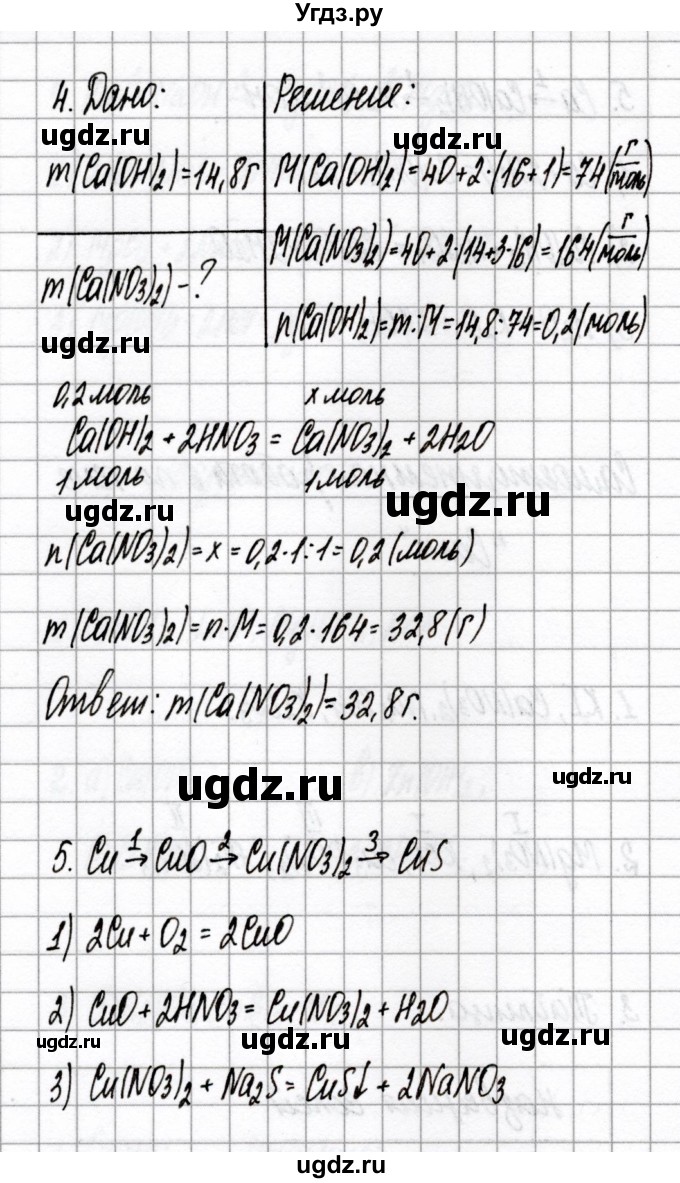 Угдз.ру
4. Дано:
Решение:
ugdz.ru
ugdz.ru
m(Ca(OH)₂)=14,8г
M(Ca(OH)₂)=40+2·(16+1)=74(г/моль)
M(Ca(NO₃)₂)=40+2·(14+3·16)=164(г/моль)
m(Ca(NO₃)₂)-?
n(Ca(OH)₂)=m:M=14,8:74=0,2(моль)
ugdz.ru
0,2 моль
x моль
Ca(OH)₂+2HNO₃=Ca(NO₃)₂+2H₂O
1 моль
1 моль
ugdz.ru
ugdz.ru
n(Ca(NO₃)₂)=x=0,2·1:1=0,2(моль)
m(Ca(NO₃)₂)=n·M=0,2·164=32,8(г)
Ответ: m(Ca(NO₃)₂)=32,8г.
ugdz.ru
ugdz.ru
5. Cu →¹ CuO →² Cu(NO₃)₂ →³ CuS
1) 2Cu+O₂=2CuO
2) CuO+2HNO₃=Cu(NO₃)₂+H₂O
ugdz.ru
ugdz.ru
3) Cu(NO₃)₂+Na₂S=CuS↓+2NaNO₃
ugdz.ru